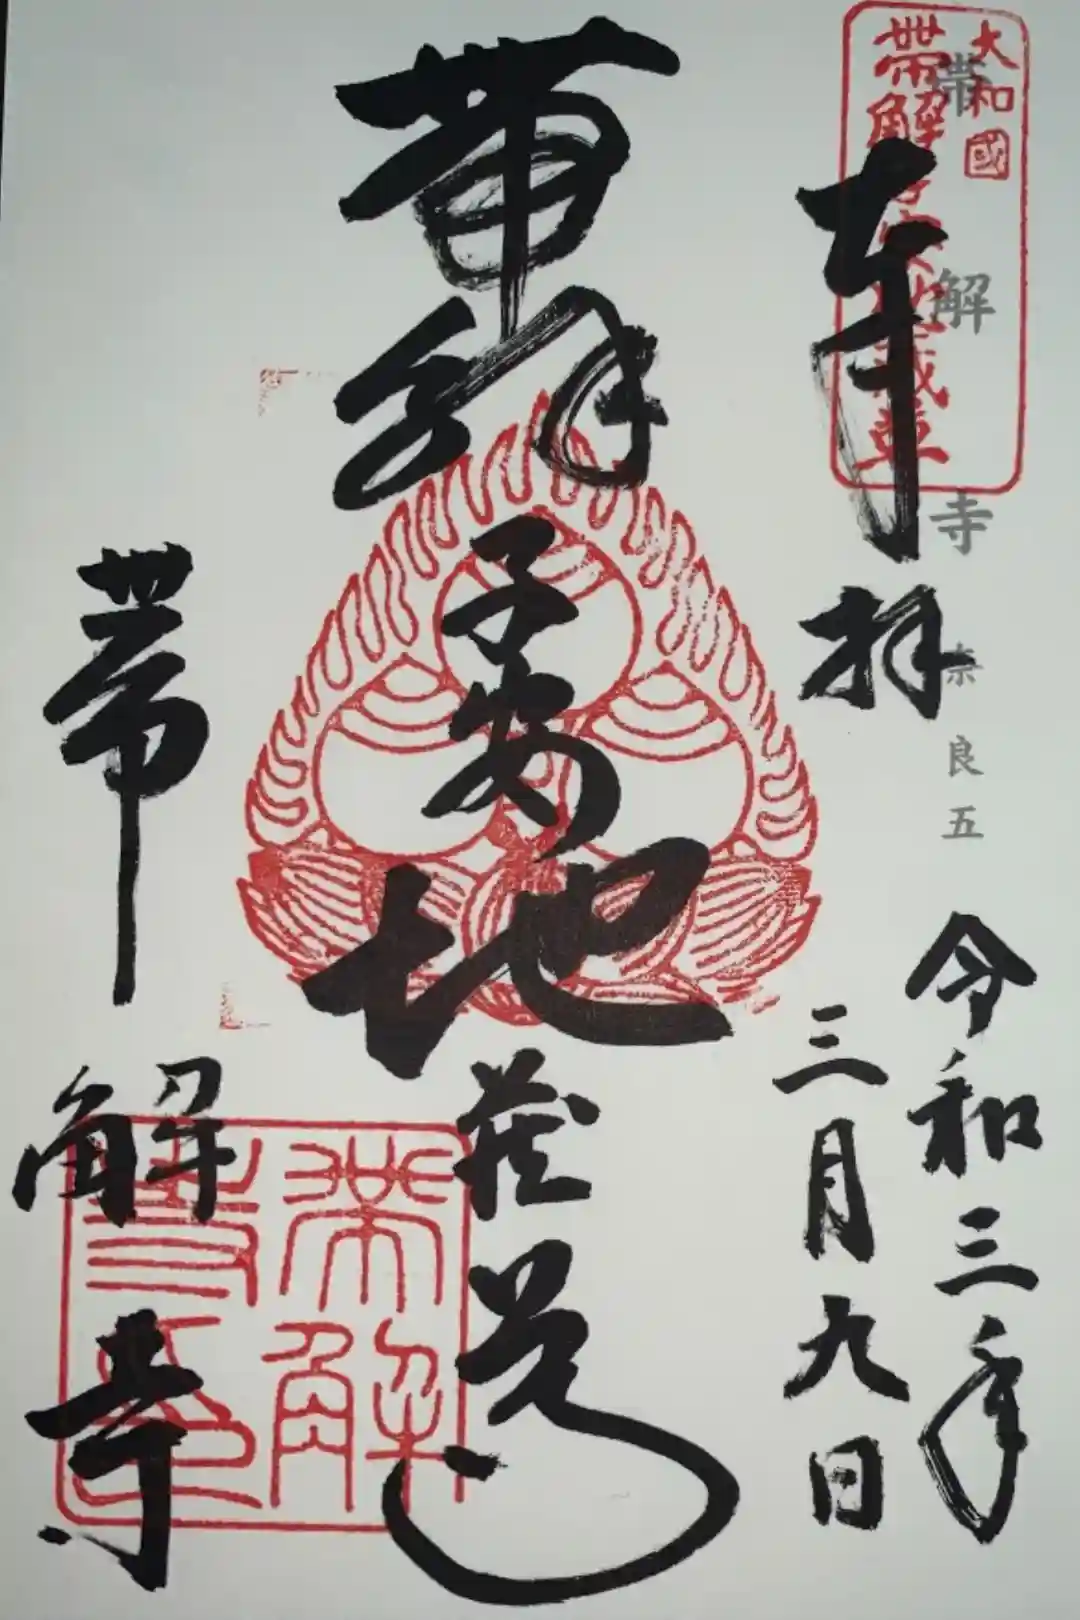 大和國
帯解子安地蔵尊
帯解寺 奈良五
奉拝
令和三年
三月九日
帯解子安地蔵尊
帯解寺
帯解
寺印